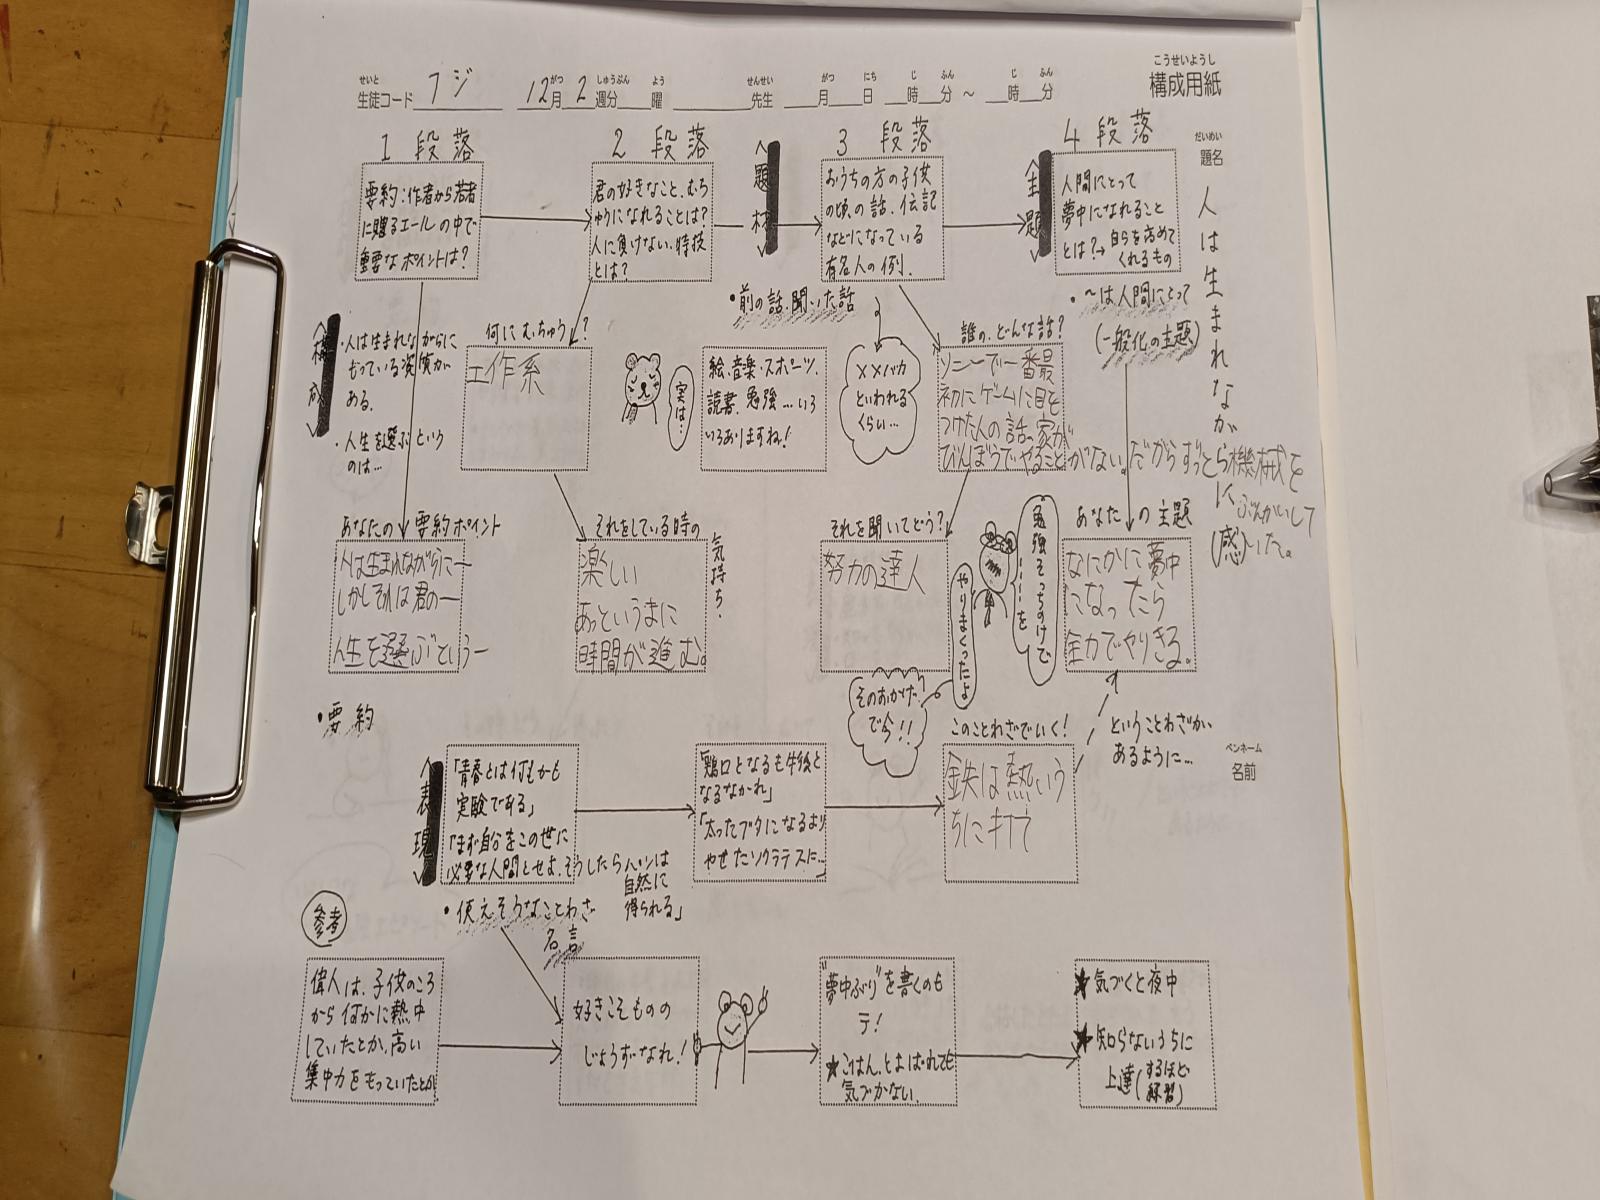 こうせいようし
構成用紙
せいと
生徒コード フジ
がつ しゅうぶん よう せんせい がつ にち じ ふん じ ふん
12月2週分 曜 先生 月 日 時 分 ～ 時 分
だいめい
題名
人は生まれながら
に
(感)
1 段落
要約:作者から若者
に贈るエールの中で
重要なポイントは?
2 段落
君の好きなこと、むち
ゅうになれることは?
人に負けない特技
とは?
＜題材＞
3 段落
おうちの方の子供
の頃、の話、伝記
などになっている
有名人の例.
＜主題＞
4 段落
人間にとって
夢中になれること
とは?→自らを高めて
くれるもの
＜構成＞
・人は生まれながらに
もっている資質が
ある.
・人生を選ぶという
のは…
何にむちゅう?
工作系
実は…
・前の話、聞いた話
絵、音楽・スポーツ、
読書、勉強…いろ
いろありますね!
××バカ
といわれる
くらい…
誰の、どんな話?
ソニーで一番最
初にゲームに目を
つけた人の話。家が
びんぼうでやることがない。だからずっと機械を
ぶんかいして
いた。
・～は人間にとって
(一般化の主題)
あなたの要約ポイント
人は生まれながらに―
しかしそれは君の―
人生を選ぶという―
・要約
それをしている時の
気持ち.
楽しい
あっというまに
時間が進む。
それを聞いてどう?
努力の達人
勉強そっちのけで
……を
やりまくったよ
そのおかげ
で今!!
あなたの主題
なにかに夢中
になったら
全力でやりきる。
＜表現＞
「青春とは何もかも
実験である」
「まず自分をこの世に
必要な人間とせよ、そうしたらパンは
自然に
得られる」
・使えそうなことわざ
名言
「鶏口となるも牛後と
なるなかれ」
「太ったブタになるより
やせたソクラテスに…」
このことわざでいく!
鉄は熱いう
ちに打て
ということわざが、
あるように…
ペンネーム
名前
参考
偉人は、子供のころ
から何かに熱中
していたとか、高い
集中力をもっていたとか
好きこそものの
じょうずなれ!
"夢中ぶり"を書くのも
テ!
★ごはん、とよばれても
気づかない.
★気づくと夜中
★知らないうちに
上達(するほど
練習)